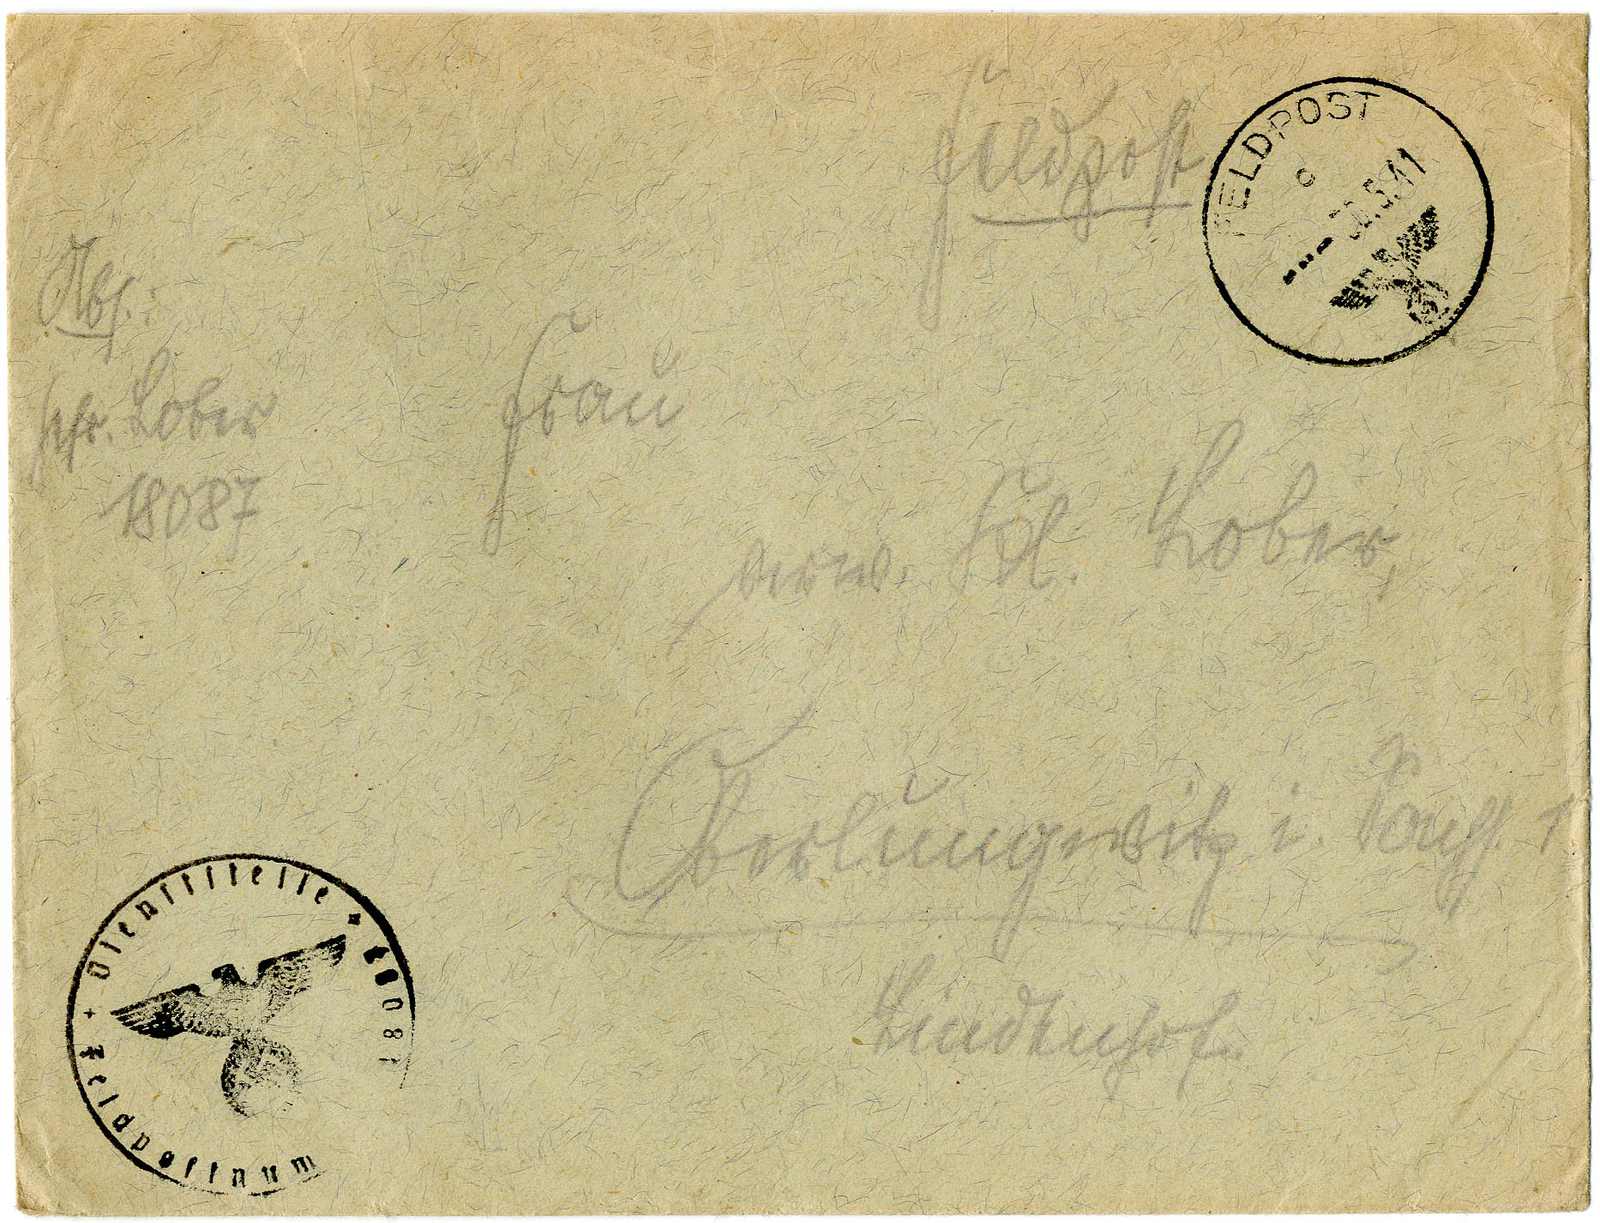 Feldpost
FELDPOST
c
5.41
Abs.:
Gefr. Lober
18087
Frau
verw. Lober,
Oberlungwitz i. Sa.
Lindenhof.
Dienststelle * 18087
Feldpostnum